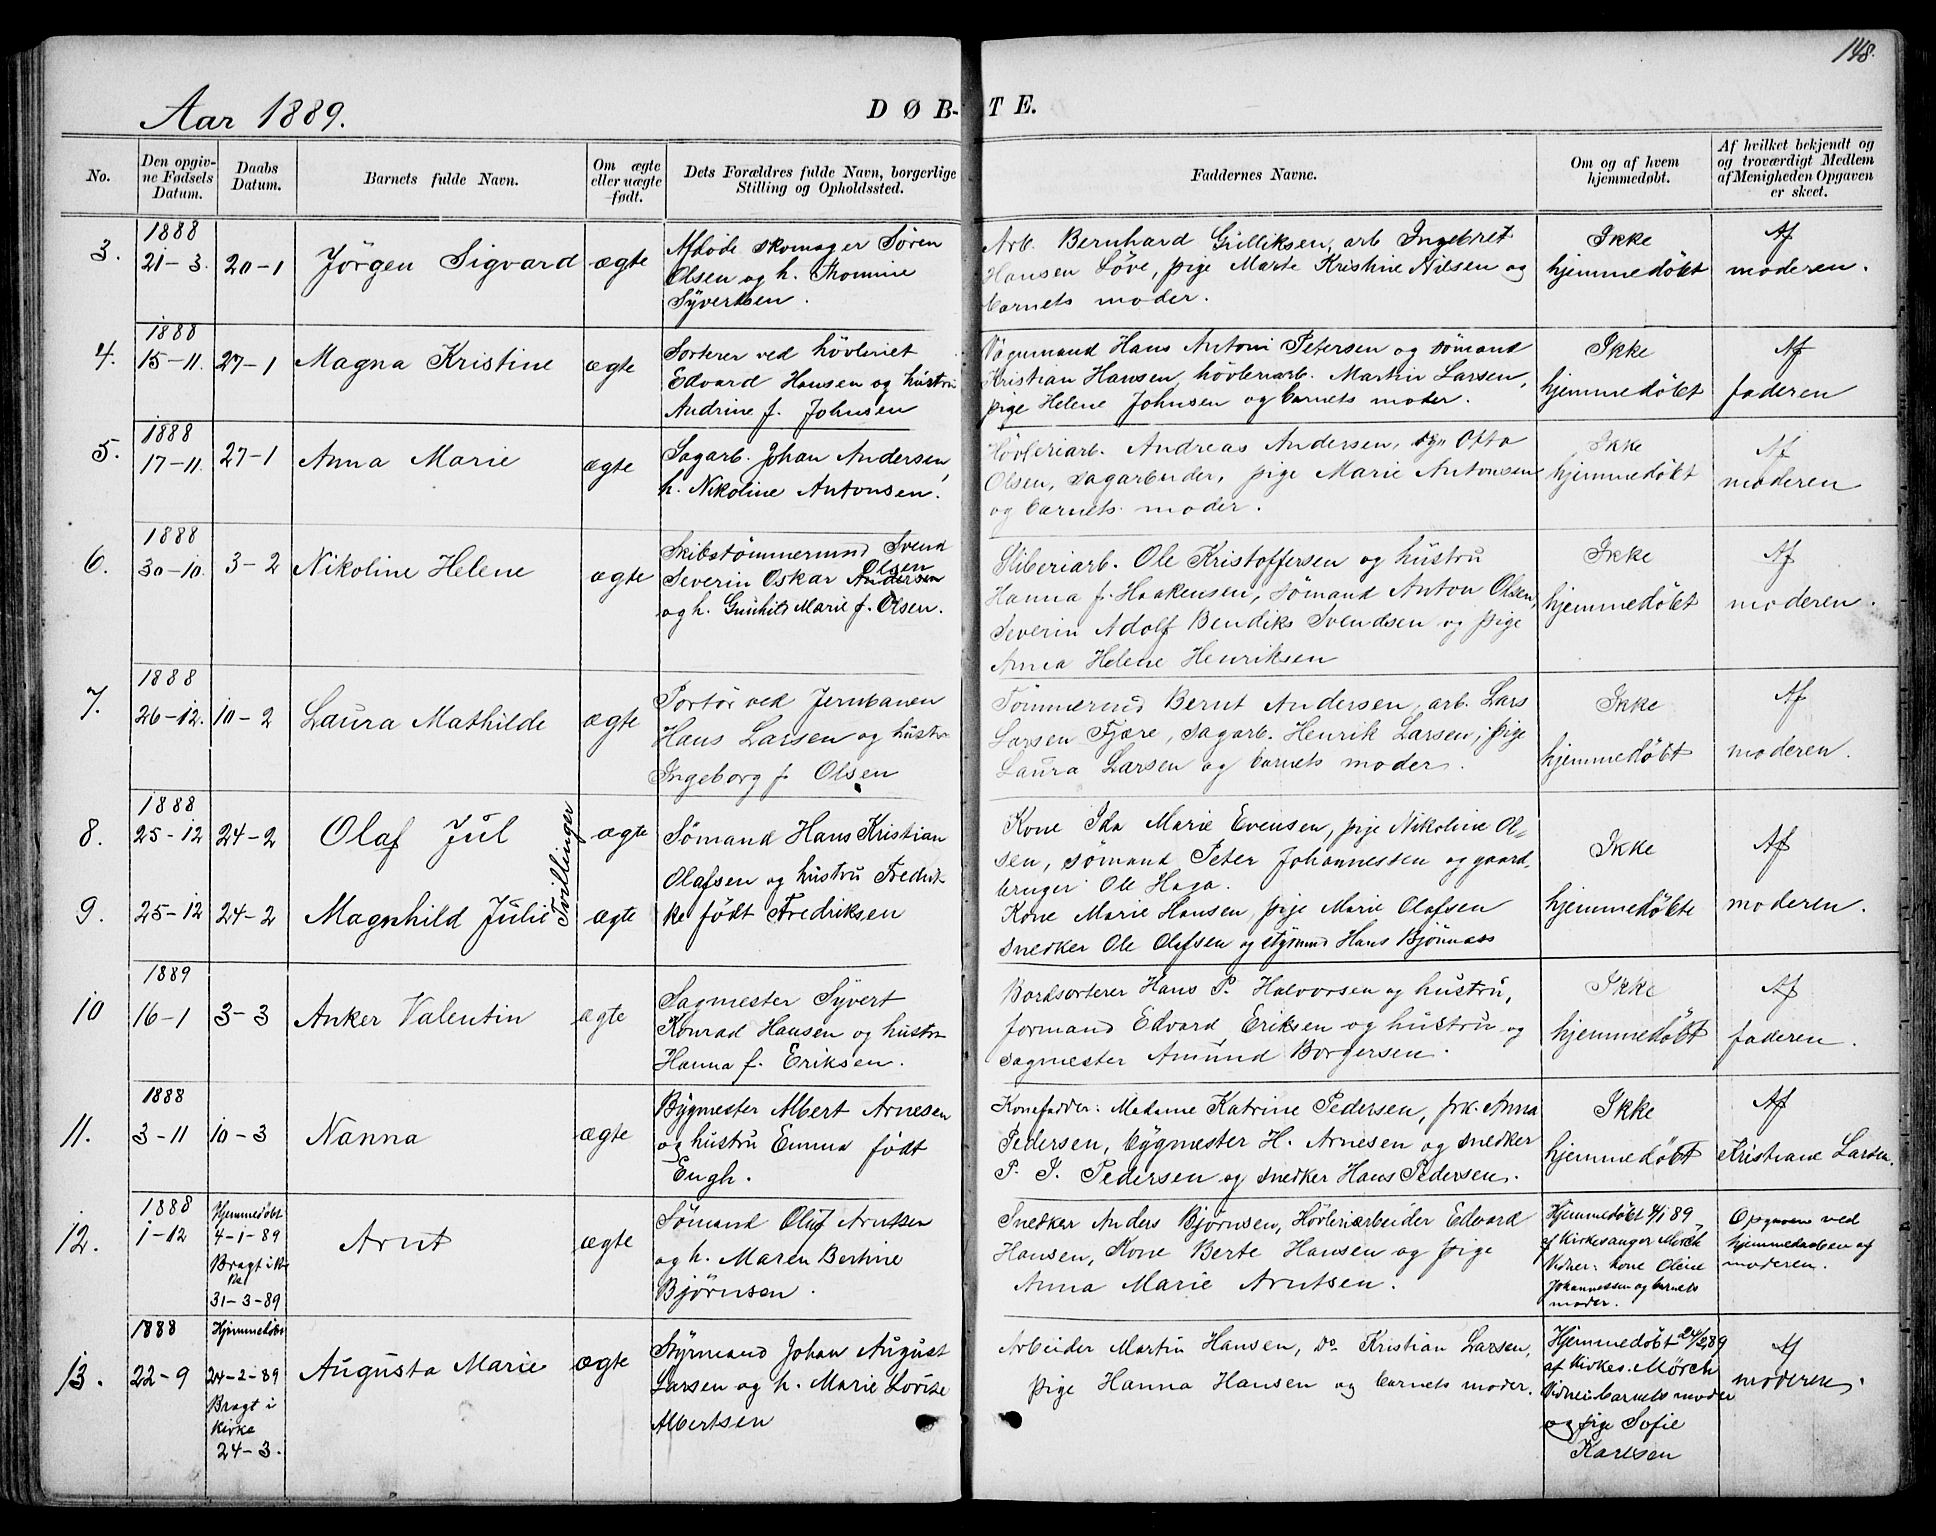 148.
Aar 1889.
DØB- TE.
No.
Den opgiv-
ne Fødsels
Datum.
Daabs
Datum.
Barnets fulde Navn.
Om ægte
eller uægte
født.
Dets Forældres fulde Navn, borgerlige
Stilling og Opholdssted.
Faddernes Navne.
Om og af hvem
hjemmedøbt.
Af hvilket bekjendt og
og troværdigt Medlem
af Menigheden Opgaven
er skeet.
3.
1888
21-3.
20-1
Jörgen Sigvard
ægte
Afdöde skomager Sören
Olsen og h. Thomine
Syvertsen.
Arb. Bernhard Gulliksen, arb Ingebret
Hansen Löve, pige Marte Kristine Nilsen og
barnets moder.
Ikke
hjemmedöbt
Af
moderen.
4.
1888
15-11.
27-1
Magna Kristine
ægte
Sorterer ved hövleriet
Edvard Hansen og hustru
Andrine f. Johnsen
Vognmand Hans Antoni Petersen og sömand
Kristian Hansen, hövleriarb. Martin Larsen,
pige Helene Johnsen og barnets moder.
Ikke
hjemmedöbt
Af
faderen
5.
1888
17-11.
27-1
Anna Marie
ægte
Sagarb. Johan Andersen,
h. Nikoline Antonsen.
Hövleriarb. Andreas Andersen, Otto
Olsen, sagarbeider, pige Marie Antonsen
og barnets moder.
Ikke
hjemmedöbt
Af
moderen
6.
1888
30-10.
3-2
Nikoline Helene
ægte
Skibstömmermd Svend
Olsen
Severin Oskar Andersen
og h. Gunhild Marie f. Olsen.
Sliberiarb. Ole Kristoffersen og hustru
Hanna f. Haakensen, sömand Anton Olsen,
Severin Adolf Bendiks Svendsen og pige
Anna Helene Henriksen
Ikke
hjemmedöbt
Af
moderen.
7.
1888
26-12.
10-2
Laura Mathilde
ægte
Portör ved Jernbanen
Hans Larsen og hustru
Ingeborg f. Olsen
Tömmermd Bernt Andersen, arb. Lars
Larsen Fjære, sagarb. Henrik Larsen, pige
Laura Larsen og barnets moder.
Ikke
hjemmedöbt
Af
moderen.
8.
1888
25-12
24-2
Olaf Jul
Tvillinger
ægte
Sömand Hans Kristian
Olafsen og hustru Fredrik-
Kone Ida Marie Evensen, pige Nikoline Ol-
sen, sömand Peter Johannessen og gaard-
bruger Ole Haga.
Ikke
hjemmedöbte
Af
moderen.
9.
25-12
24-2
Magnhild Julie
ægte
ke födt Fredriksen
Kone Marie Hansen, pige Marie Olafsen
snedker Ole Olafsen og styrmd Hans Björnaas
10
1889
16-1
3-3
Anker Valentin
ægte
Sagmester Syvert
Konrad Hansen og hustru
Hanna f. Eriksen.
Bordsorterer Hans P. Halvorsen og hustru,
formand Edvard Eriksen og hustru og
sagmester Amund Borgersen.
Ikke
hjemmedöbt
Af
faderen.
11.
1888
3-11
10-3
Nanna
ægte
Bygmester Albert Arnesen
og hustru Emma födt
Engh.
Konefadder: Madame Katrine Pedersen, frk. Anna
Pedersen, bygmester H. Arnesen og snedker
P. J. Pedersen og snedker Hans Pedersen.
Ikke
hjemmedöbt
Af
Kristiane Larsen.
12.
1888
1-12
Hjemmedöbt
4-1-89
Bragt i kir
ke
31-3-89
Arnt
ægte
Sömand Oluf Arntsen
og h. Maren Bertine
Björnsen.
Snedker Anders Björnsen, Hövleriarbeider Edvard
Hansen, Kone Berte Hansen og pige
Anna Marie Arntsen.
Hjemmedöbt 4/1 89
af Kirkesanger Mörch
Vidner: kone Oleine
Johannessen og barnets
moder.
Opgaven ved
hjemmedaaben af
moderen.
13.
1888
22-9
Hjemmedöbt
24-2-89
Bragt i
kirke
24-3.
Augusta Marie
ægte
Styrmand Johan August
Larsen og h. Marie Lovise
Albertsen
Arbeider Martin Hansen, Do Kristian Larsen,
pige Hanna Hansen og barnets moder.
Hjemmedöbt 24/2 89
af Kirkes. Mörch
Vidner: barnets moder
og pige Sofie
Karlsen
Af
moderen.